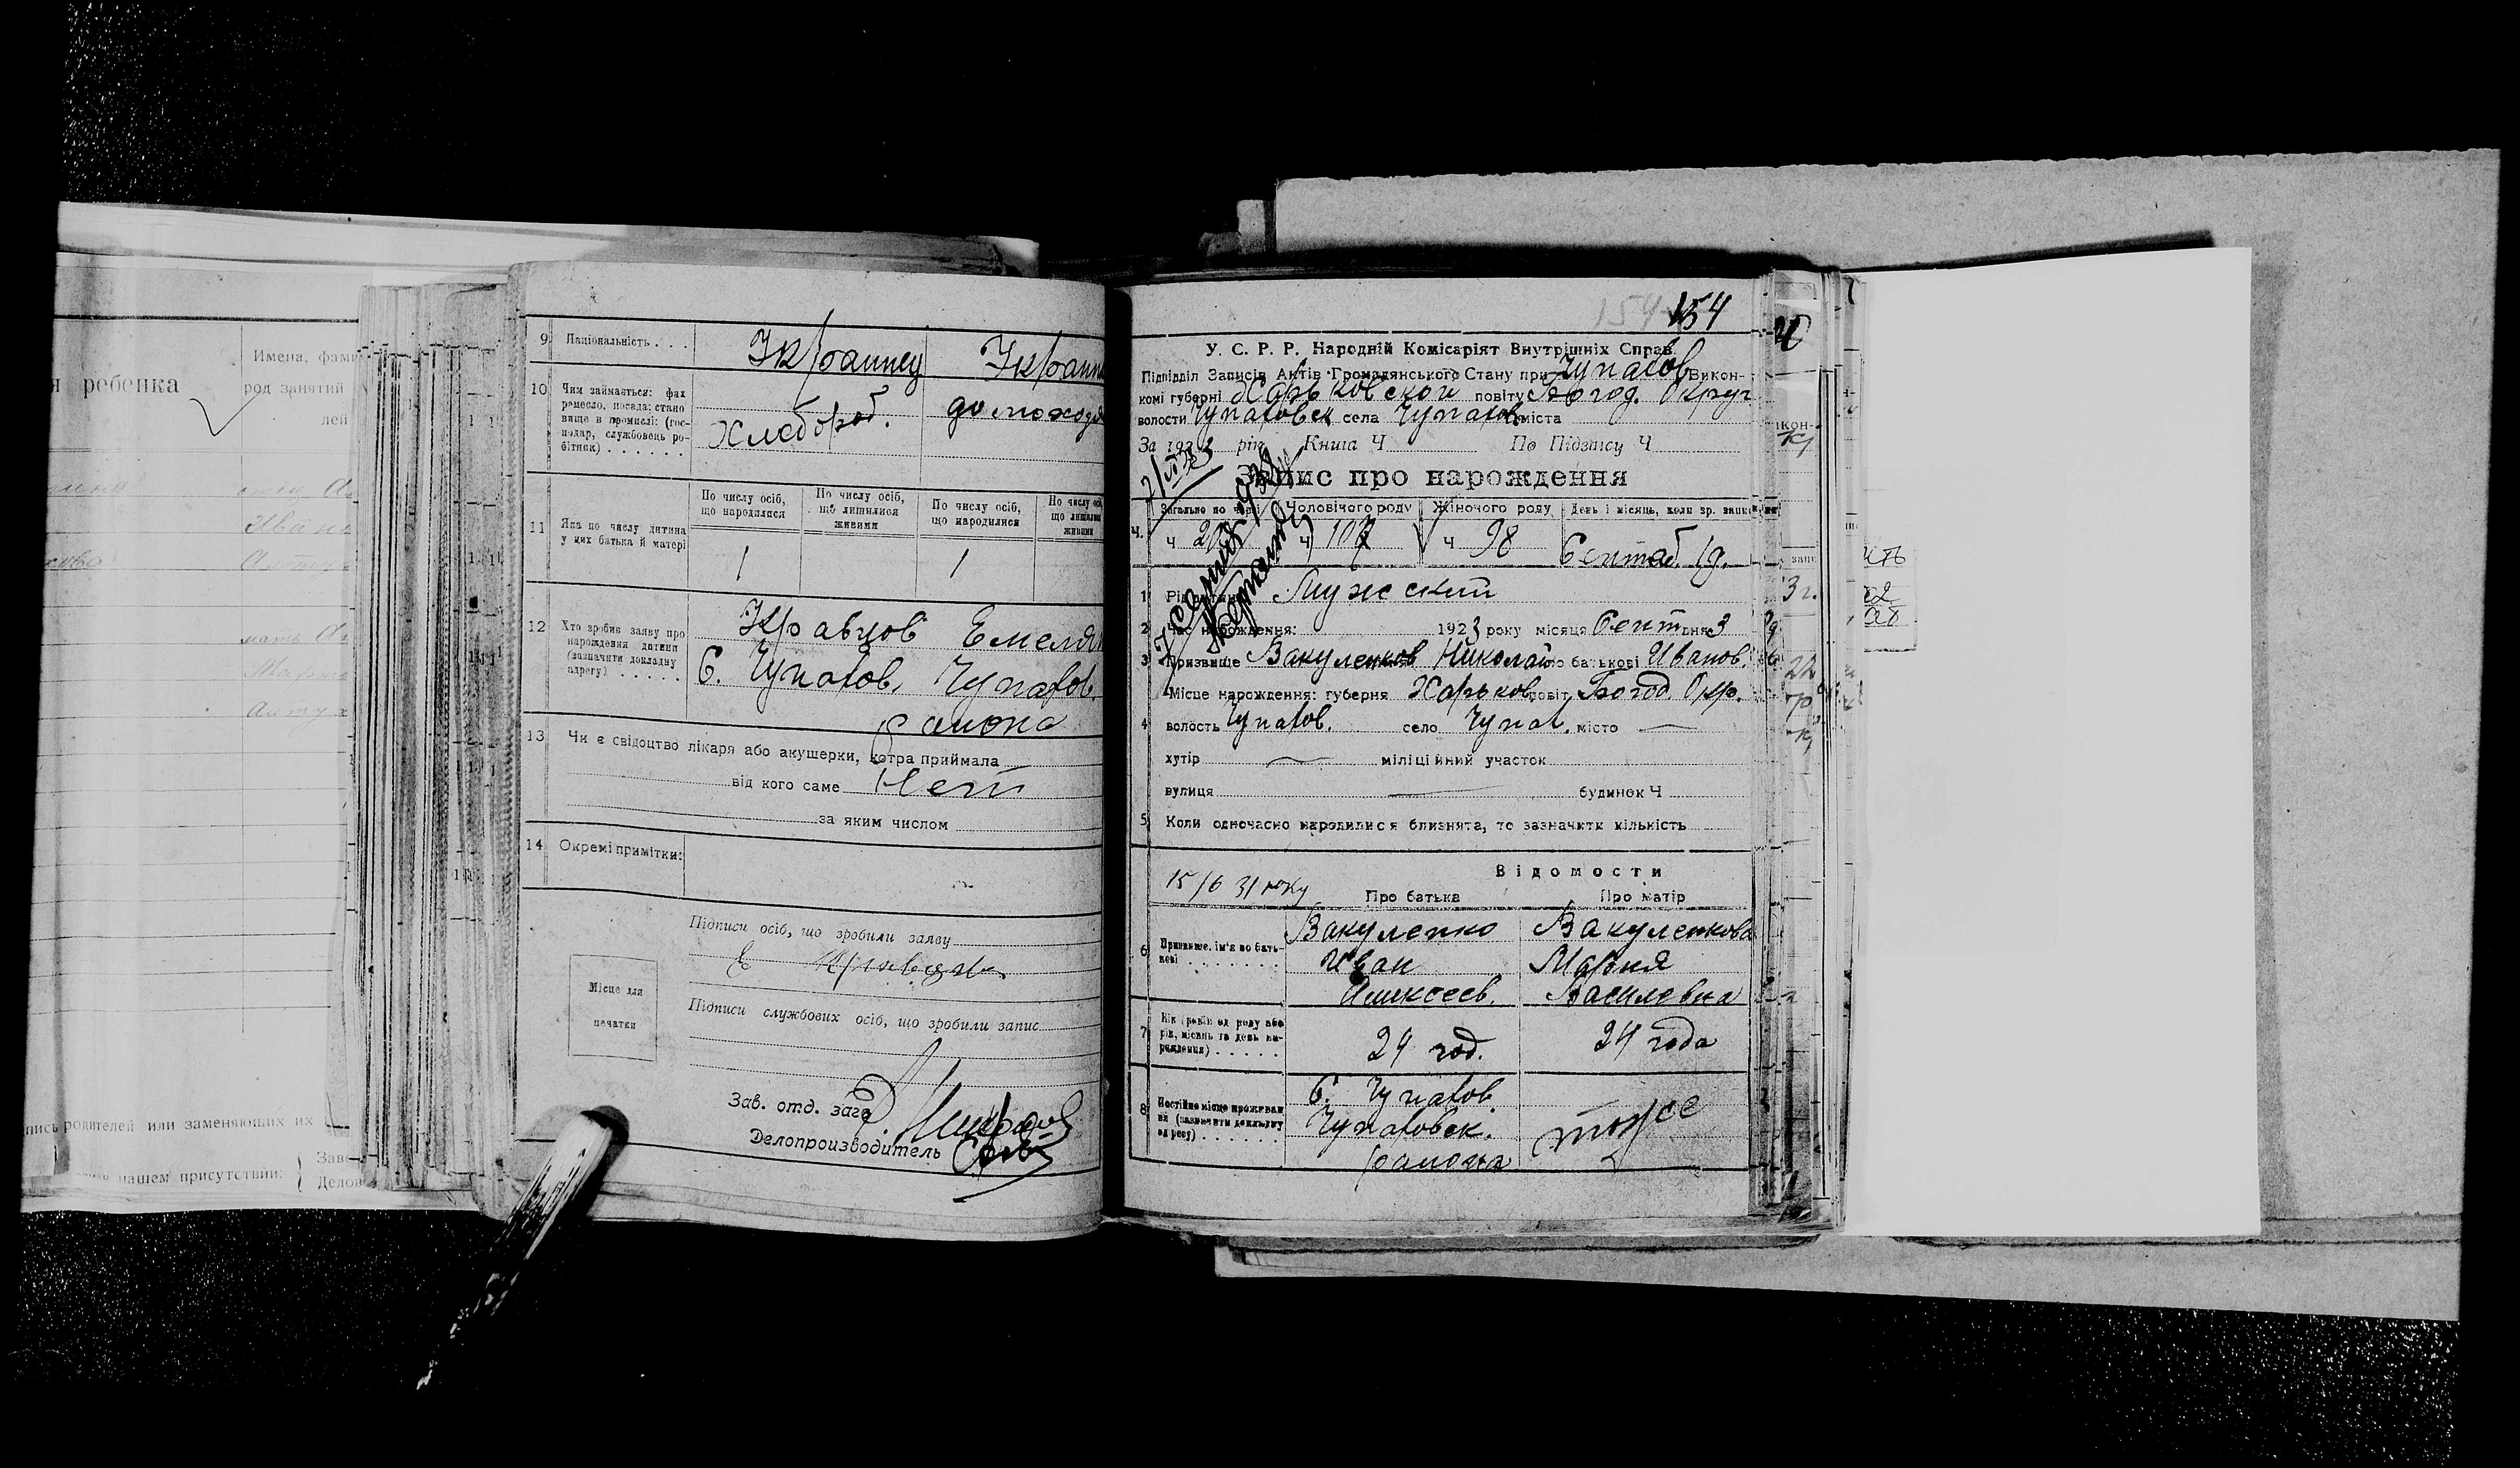 я ребенка
Имена, фами
род занятий
лей
отец
Иван
мать
пись родителей или заменяющих их
нашем присутствии:
Зав
Делов
9 Національність . . .
Украинец
10 Чим займається: фах
ремесло, посада; стано
вище в промислі: (гос-
подар, службовець ро-
бітник) . . . . . .
Хлебороб.
домохозя
11 Яка по числу дитина
у цих батька й матері
По числу осіб,
що народилися
По числу осіб,
що лишилися
живими
По числу осіб,
що народилися
По числу осі
що лишили
живими
1
1
12 Хто зробив заяву про
народження дитини
(зазначити докладну
адресу) . . . . .
Кравцов Емелян
С. Чупахов, Чупахов.
района
13 Чи є свідоцтво лікаря або акушерки, котра приймала
від кого саме Нет
за яким числом
14 Окремі примітки:
Підписи осіб, що зробили заяву
Е
Місце для
печатки
Підписи службових осіб, що зробили запис
Зав. отд. загс
Делопроизводитель
154 154
У. С. Р. Р. Народній Комісаріят Внутрішніх Справ
Підвідділ Записів Актів Громадянського Стану при Чупахов Викон-
комі губерні Харьковской повіту Богод. Округ
волости Чупаховск села Чупахов міста
За 1923 рік Книга Ч По Підпису Ч
Запис про нарождення
Загально по
Чоловічого роду
Жіночого роду
День і місяць, коли зр. запис
ч
ч 107
ч 98
Сентяб. 1д.
1 Мужский
2 Час нарождення: 1923 року місяця Сент дня 3
3 Призвище Вакуленков Николай по батькові Иванов.
4 Місце нарождення: губерня Харьков повіт Богод. Окр.
волость Чупахов. село Чупах. місто —
хутір — міліційний участок
вулиця — будинок Ч
5 Коли одночасно народилися близнята, то зазначити кількість
15/6 31 року
Відомости
Про батька
Про матір
6 Призвище, ім'я по бать-
кові . . . . . . .
Вакуленко
Иван
Алексеев.
Вакуленкова
Мария
Василевна
7 Вік (років од роду або
рік, місяць та день на-
рождення) . . . . .
24 год.
24 года
8 Постійне місце прожіван
ня (зазначити докладну
адресу) . . . . . .
С. Чупахов
Чупаховск.
района
тоже